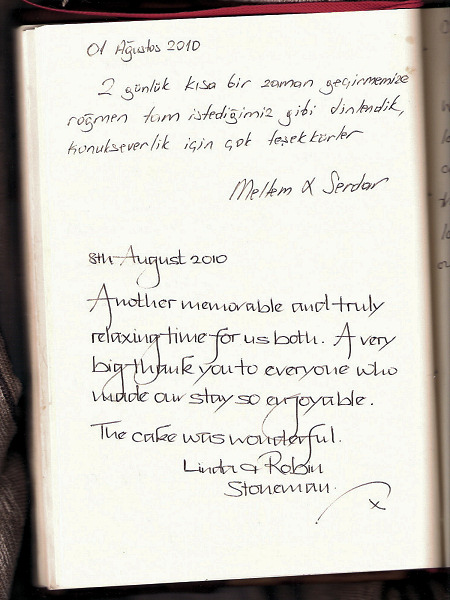 01 Ağustos 2010
2 günlük kısa bir zaman geçirmemize
rağmen tam istediğimiz gibi dinlendik,
konukseverlik için çok teşekkürler
Meltem & Serdar
8th August 2010
Another memorable and truly
relaxing time for us both. A very
big thank you to everyone who
made our stay so enjoyable.
The cake was wonderful.
Linda & Robin
Stoneman.
x